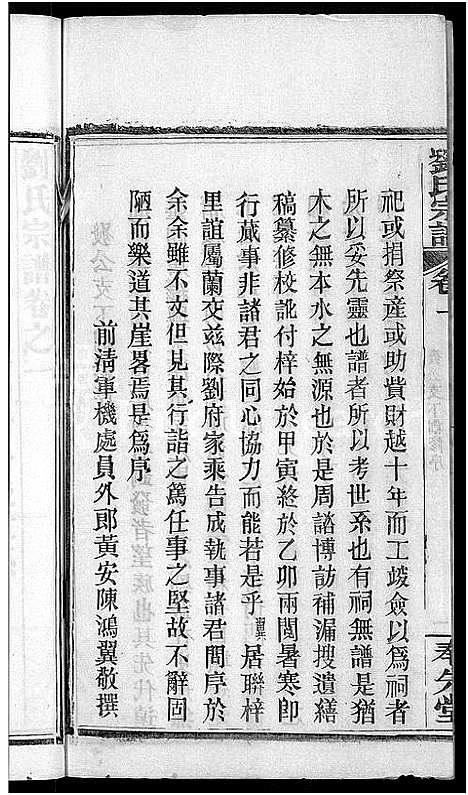 劉氏宗譜
卷一
奉先堂
祀或捐祭產或助費財越十年而工竣僉以爲祠者
所以妥先靈也譜者所以考世系也有祠無譜是猶
木之無本水之無源也於是周諮博訪補漏搜遺繕
稿纂修校訛付梓始於甲寅終於乙卯兩閱暑寒卽
行蕆事非諸君之同心協力而能若是乎翼居聯梓
里誼屬蘭交兹際劉府家乘告成執事諸君問序於
余余雖不文但見其行詣之篤任事之堅故不辭固
陋而樂道其崖畧焉是爲序
前清軍機處員外郎黃安陳鴻翼敬撰